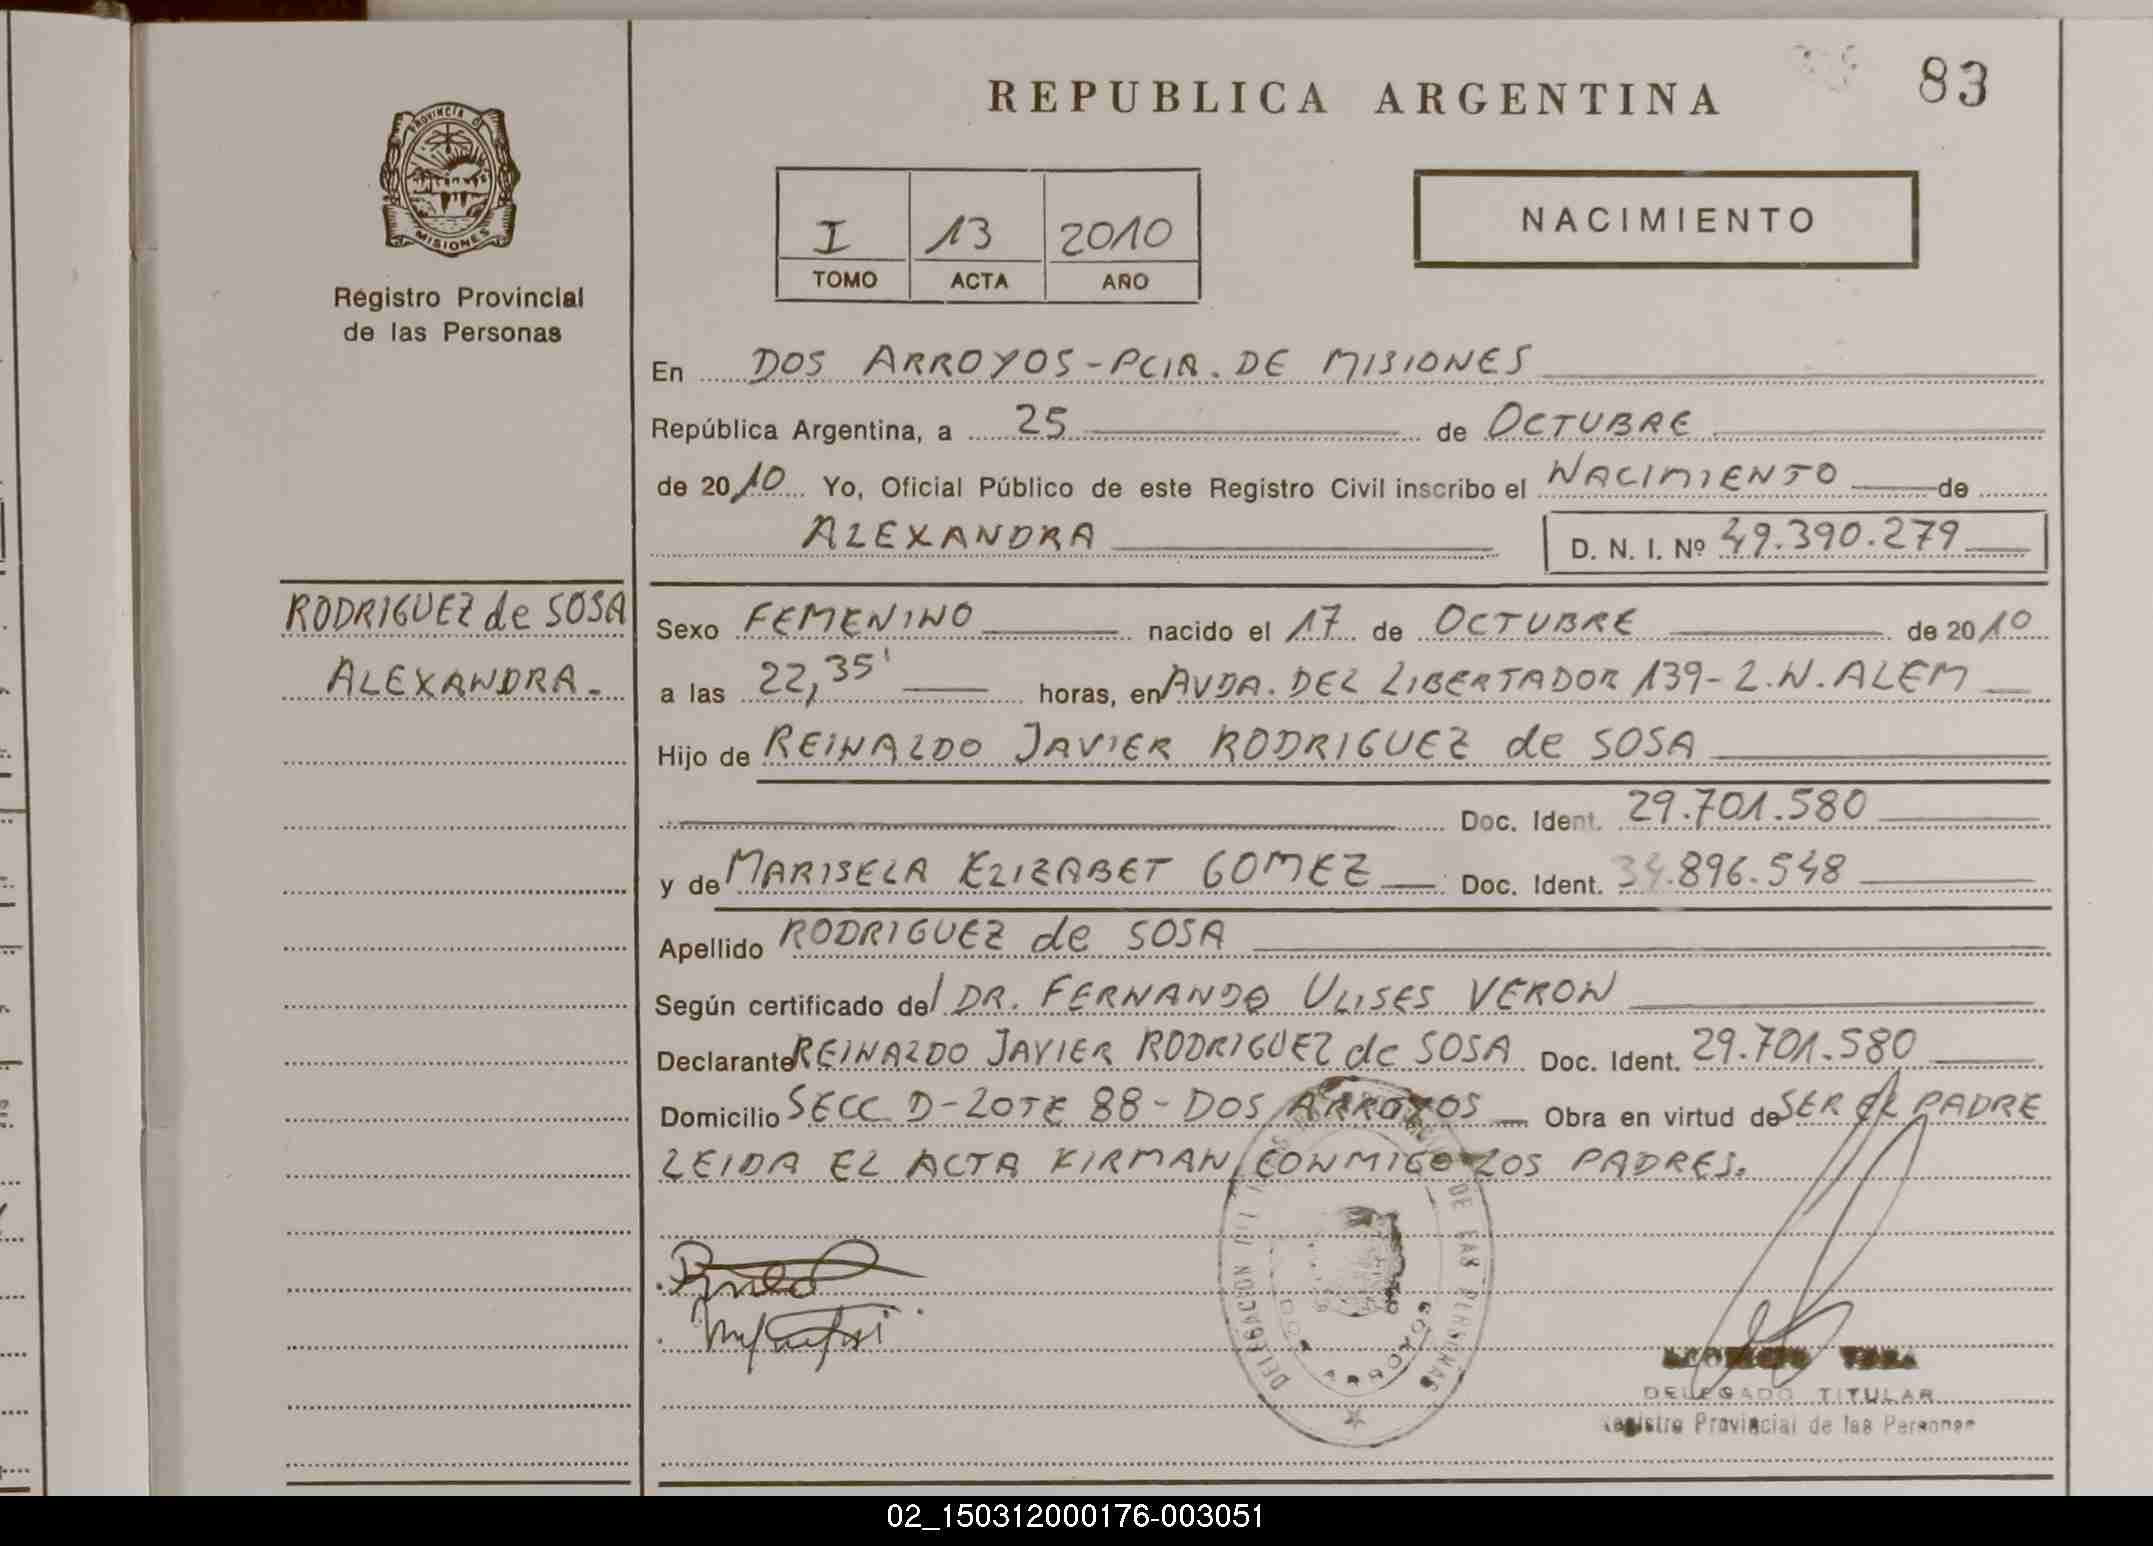 REPUBLICA ARGENTINA
83
PROVINCIA DE MISIONES
Registro Provincial
de las Personas
I 13 2010
TOMO ACTA AÑO
NACIMIENTO
En DOS ARROYOS-PCIA. DE MISIONES
República Argentina, a 25 de OCTUBRE
de 2010 Yo, Oficial Público de este Registro Civil inscribo el NACIMIENTO de
ALEXANDRA D. N. I. Nº 49.390.279
RODRIGUEZ de SOSA
ALEXANDRA.
Sexo FEMENINO nacido el 17 de OCTUBRE de 2010
a las 22,35' horas, en AVDA. DEL LIBERTADOR 139-L.N. ALEM
Hijo de REINALDO JAVIER RODRIGUEZ de SOSA
Doc. Ident. 29.701.580
y de MARISELA ELIZABET GOMEZ Doc. Ident. 34.896.548
Apellido RODRIGUEZ de SOSA
Según certificado del DR. FERNANDO ULISES VERON
Declarante REINALDO JAVIER RODRIGUEZ de SOSA Doc. Ident. 29.701.580
Domicilio SECC D-LOTE 88-DOS ARROYOS Obra en virtud de SER EL PADRE
LEIDA EL ACTA FIRMAN CONMIGO LOS PADRES.
DELEGACION
DE LAS PERSONAS
DOS ARROYOS
DELEGADO TITULAR
Registro Provincial de las Personas
02_150312000176-003051